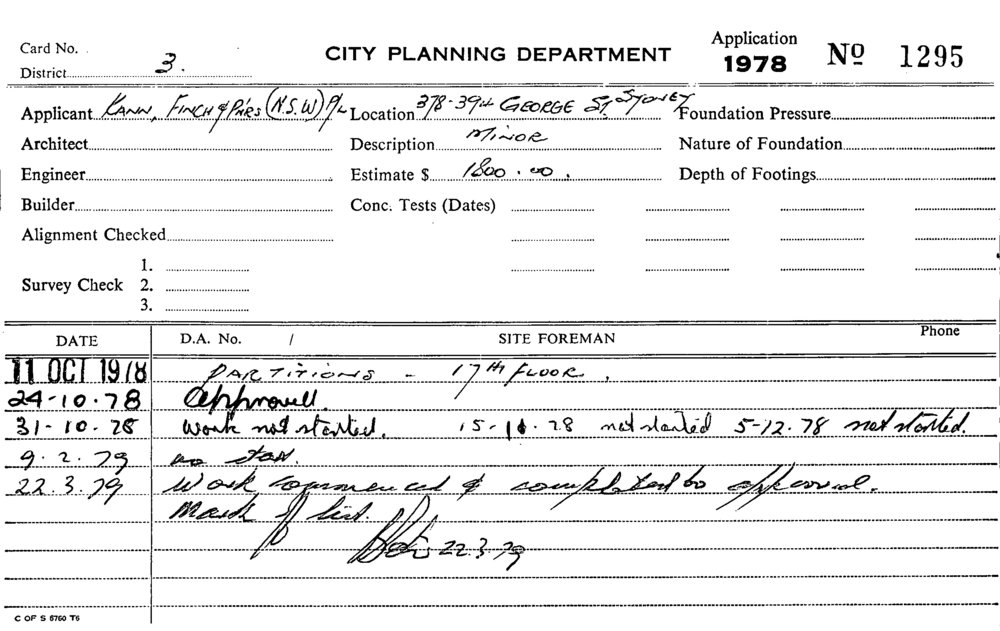 Card No.
CITY PLANNING DEPARTMENT
Application
1978
Nº 1295
District 3.
Applicant KANN, FINCH & P'NRS (N.S.W) P/L Location 378-394 GEORGE ST. SYDNEY Foundation Pressure
Architect Description MINOR Nature of Foundation
Engineer Estimate $ 1800.00. Depth of Footings
Builder Conc. Tests (Dates)
Alignment Checked
1.
Survey Check 2.
3.
DATE D.A. No. / SITE FOREMAN Phone
11 OCT 1978 PARTITIONS - 17TH FLOOR.
24-10-78 Approved.
31-10-78 Work not started. 15-11-78 not started 5-12-78 not started.
9.2.79 no start.
22.3.79 Work commenced & completed to approval.
Mark off list.
22.3.79
C OF S 5760 T6